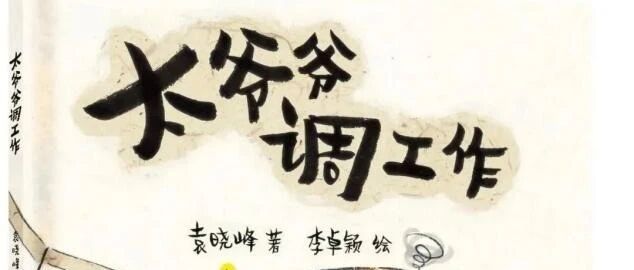 太爷爷
调工作
袁晓峰 著 李卓颖 绘
太爷爷调工作
袁晓峰